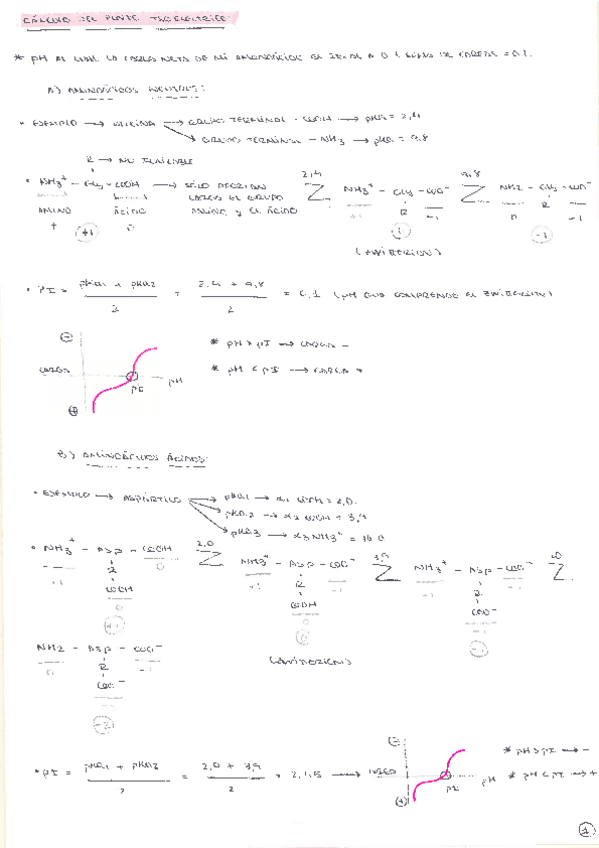 CÁLCULO DEL PUNTO ISOELÉCTRICO:
* pH AL CUAL LA CARGA NETA DE MI AMINOÁCIDO ES IGUAL A 0
A) AMINOÁCIDOS NEUTROS:
• EJEMPLO → GLICINA → GRUPO TERMINAL - COOH → pKa1 = 2,4
→ GRUPO TERMINAL - NH3 → pKa2 = 9,8
R → NO IONIZABLE
• NH3+ - Gly - COOH → SÓLO APORTAN CARGA EL GRUPO AMINO Y EL ÁCIDO
AMINO ÁCIDO
+ 0
+1
2,4
NH3+ - Gly - COO-
R
+1 -1
9,8
NH2 - Gly - COO-
R
0 -1
-1
(ZWITTERION)
• PI = pKa1 + pKa2 / 2 = 2,4 + 9,8 / 2 = 6,1 (pH QUE COMPRENDE EL ZWITTERION)
CARGA pI pH
* pH > pI → CARGA -
* pH < pI → CARGA +
B) AMINOÁCIDOS ÁCIDOS:
• EJEMPLO → ASPÁRTICO → pKa1 → α1 COOH = 2,0.
→ pKa2 → COOH = 3,9
→ pKa3 → NH3+ = 10,0
• NH3+ - Asp - COOH
R
COOH
+1 0
0
+1
2,0
NH3+ - Asp - COO-
R
COOH
+1 -1
0
3,9
NH3+ - Asp - COO-
R
COO-
-1
10
NH2 - Asp - COO-
R
COO-
0 -1
-2
• pI = pKa1 + pKa2 / 2 = 2,0 + 3,9 / 2 =
CARGA pI pH
* pH > pI → -
* pH < pI → +
1